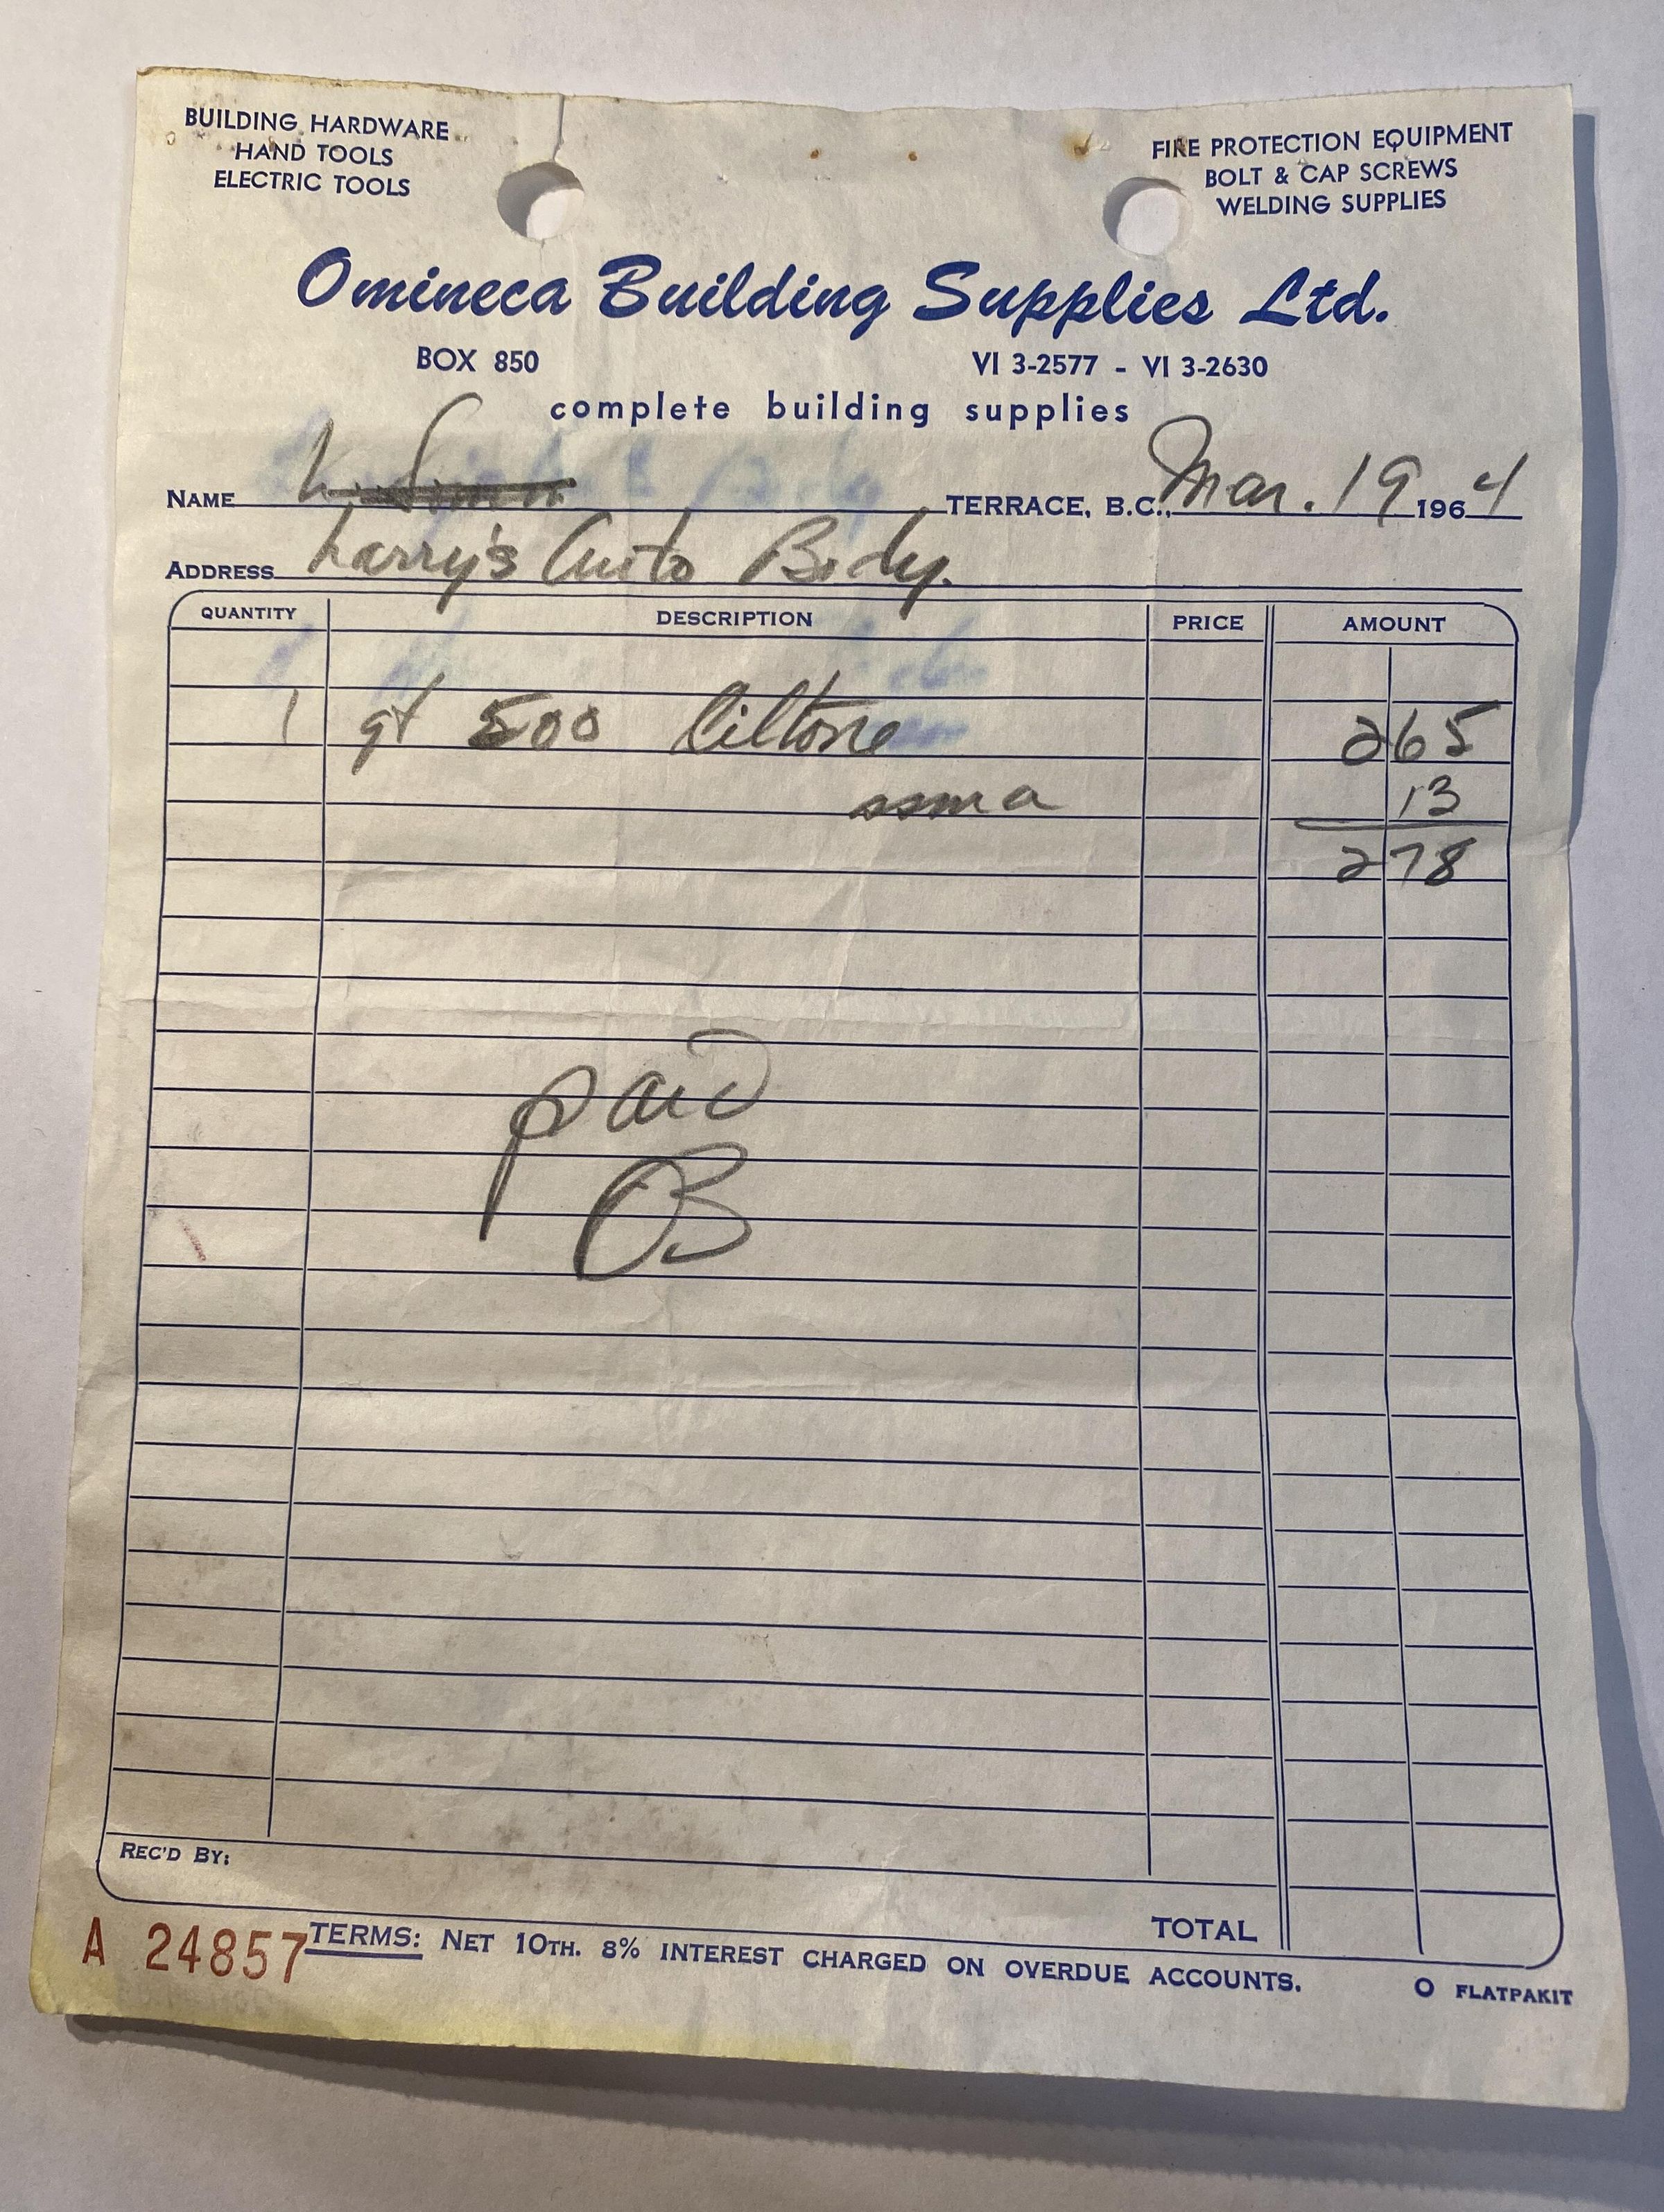 BUILDING HARDWARE
HAND TOOLS
ELECTRIC TOOLS
FIRE PROTECTION EQUIPMENT
BOLT & CAP SCREWS
WELDING SUPPLIES
Omineca Building Supplies Ltd.
BOX 850 VI 3-2577 - VI 3-2630
complete building supplies
NAME TERRACE, B.C., Mar. 19 1964
ADDRESS Larry's Auto Body.
QUANTITY DESCRIPTION PRICE AMOUNT
1 qt 500 Ciltone 2 65
ssma 13
2 78
paid
OB
REC'D BY:
TOTAL
A 24857 TERMS: NET 10TH. 8% INTEREST CHARGED ON OVERDUE ACCOUNTS.
FLATPAKIT